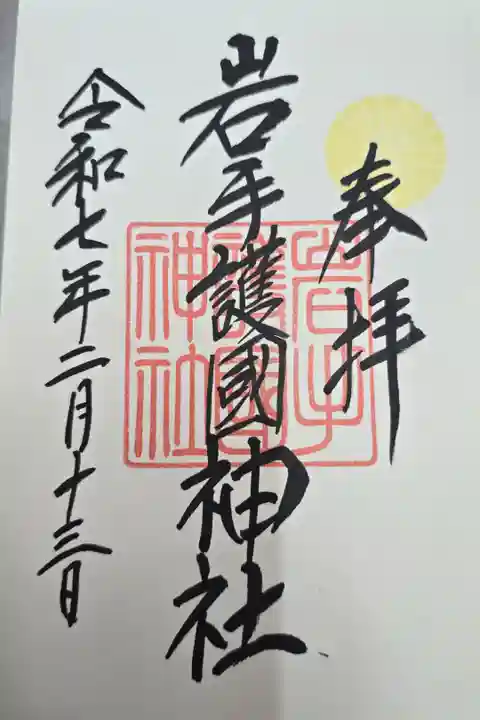 奉拝
岩手護國神社
岩手
護國
神社
令和七年二月十三日